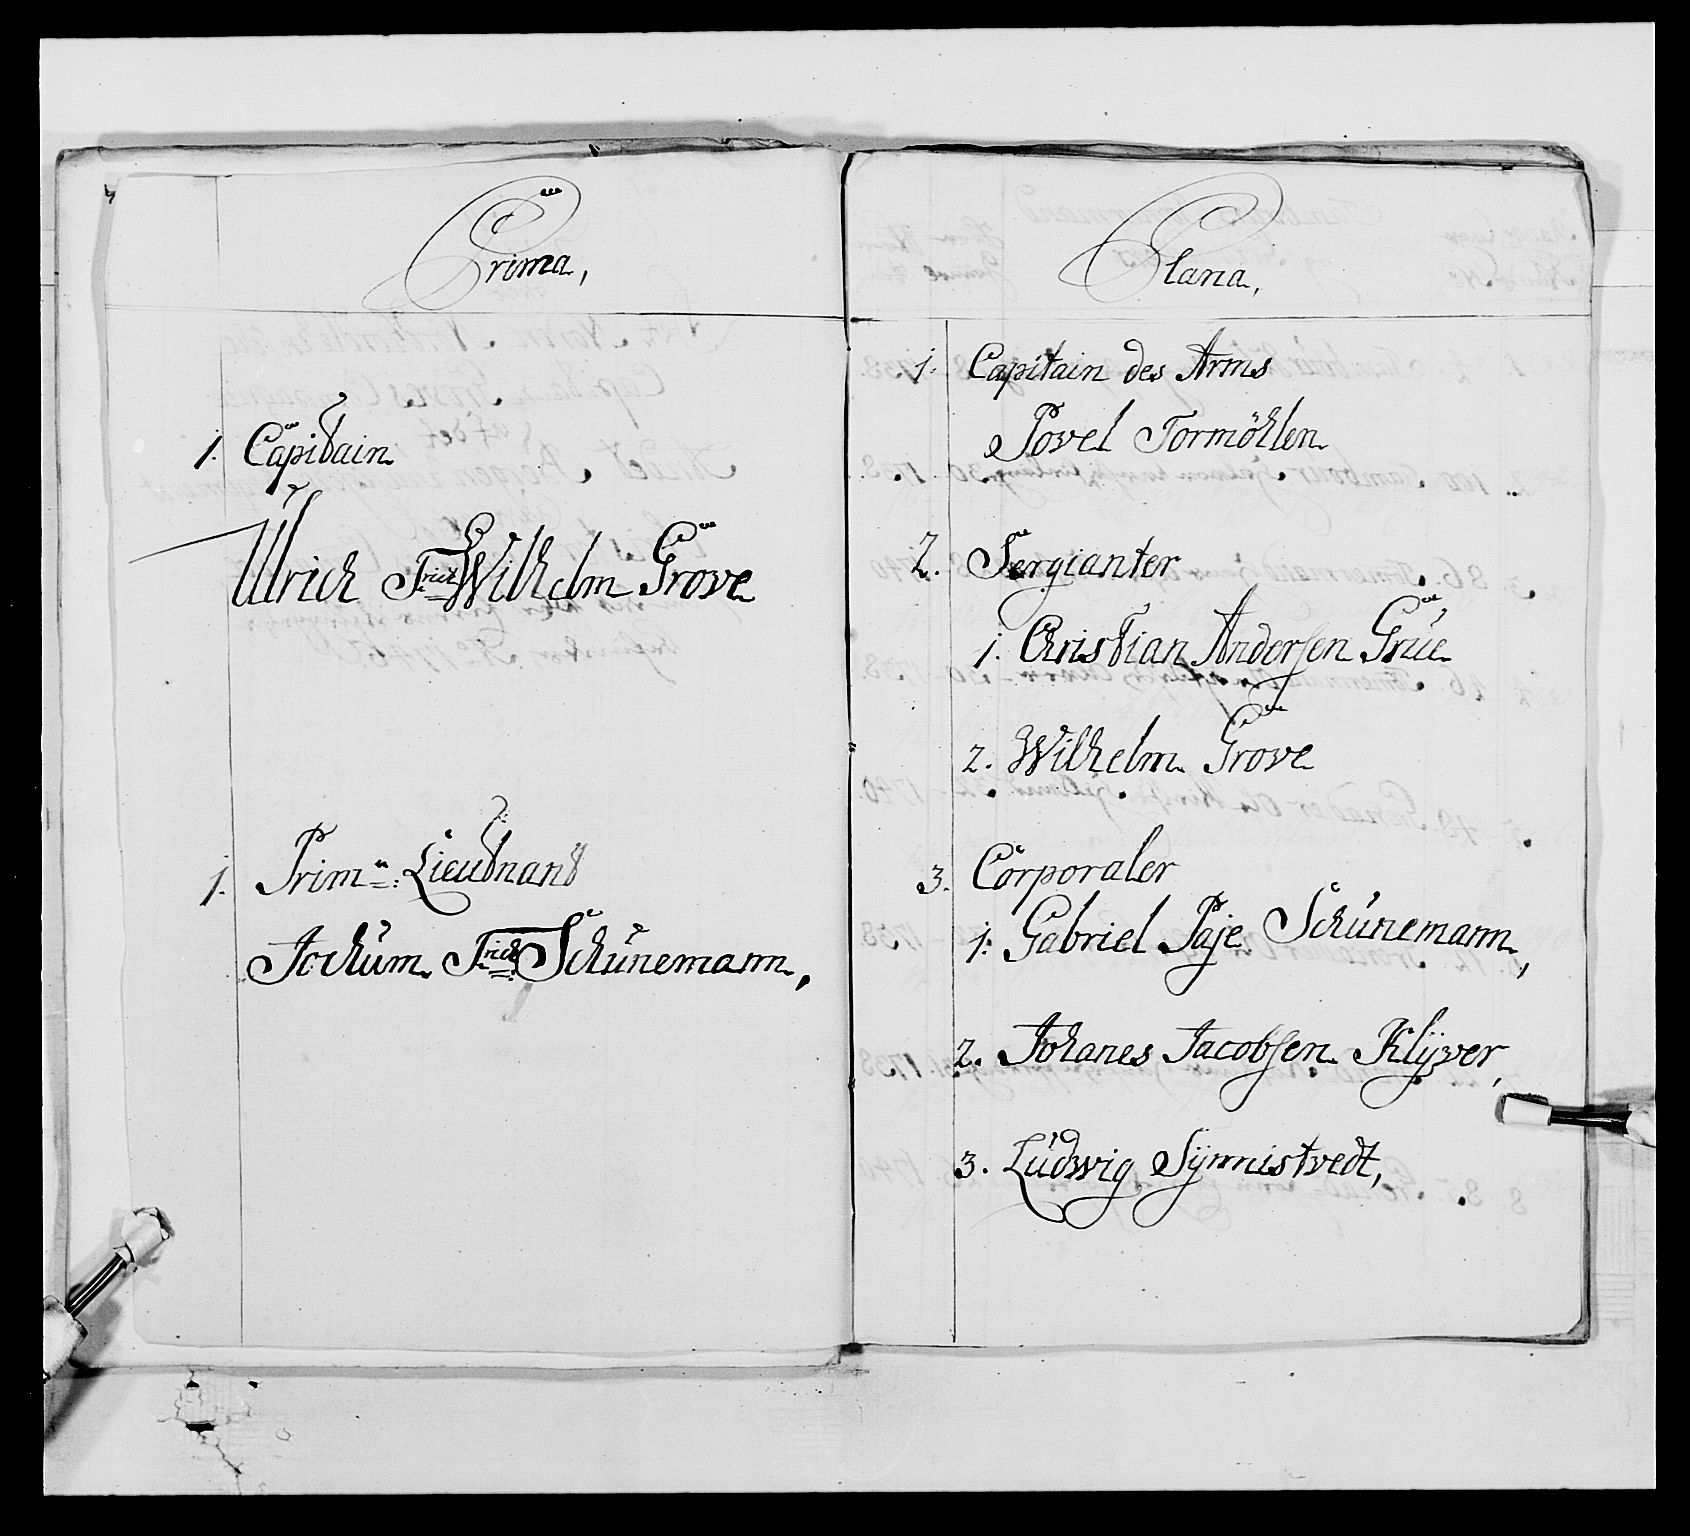 Prima,
1. Capitain
Ulrich Fried: Wilhelm Grove
1. Prim: Lieutnant
Jochum Fried: Schünemann,
Plana,
1. Capitain des Arms
Povel Tormöhlen
2. Sergianter
1. Christian Andersen Grüe
2. Wilhelm Grove
3. Corporaler
1. Gabriel Paje Schünemann,
2. Johanes Jacobsen Klÿver,
3. Ludwig Sÿnnistvedt,